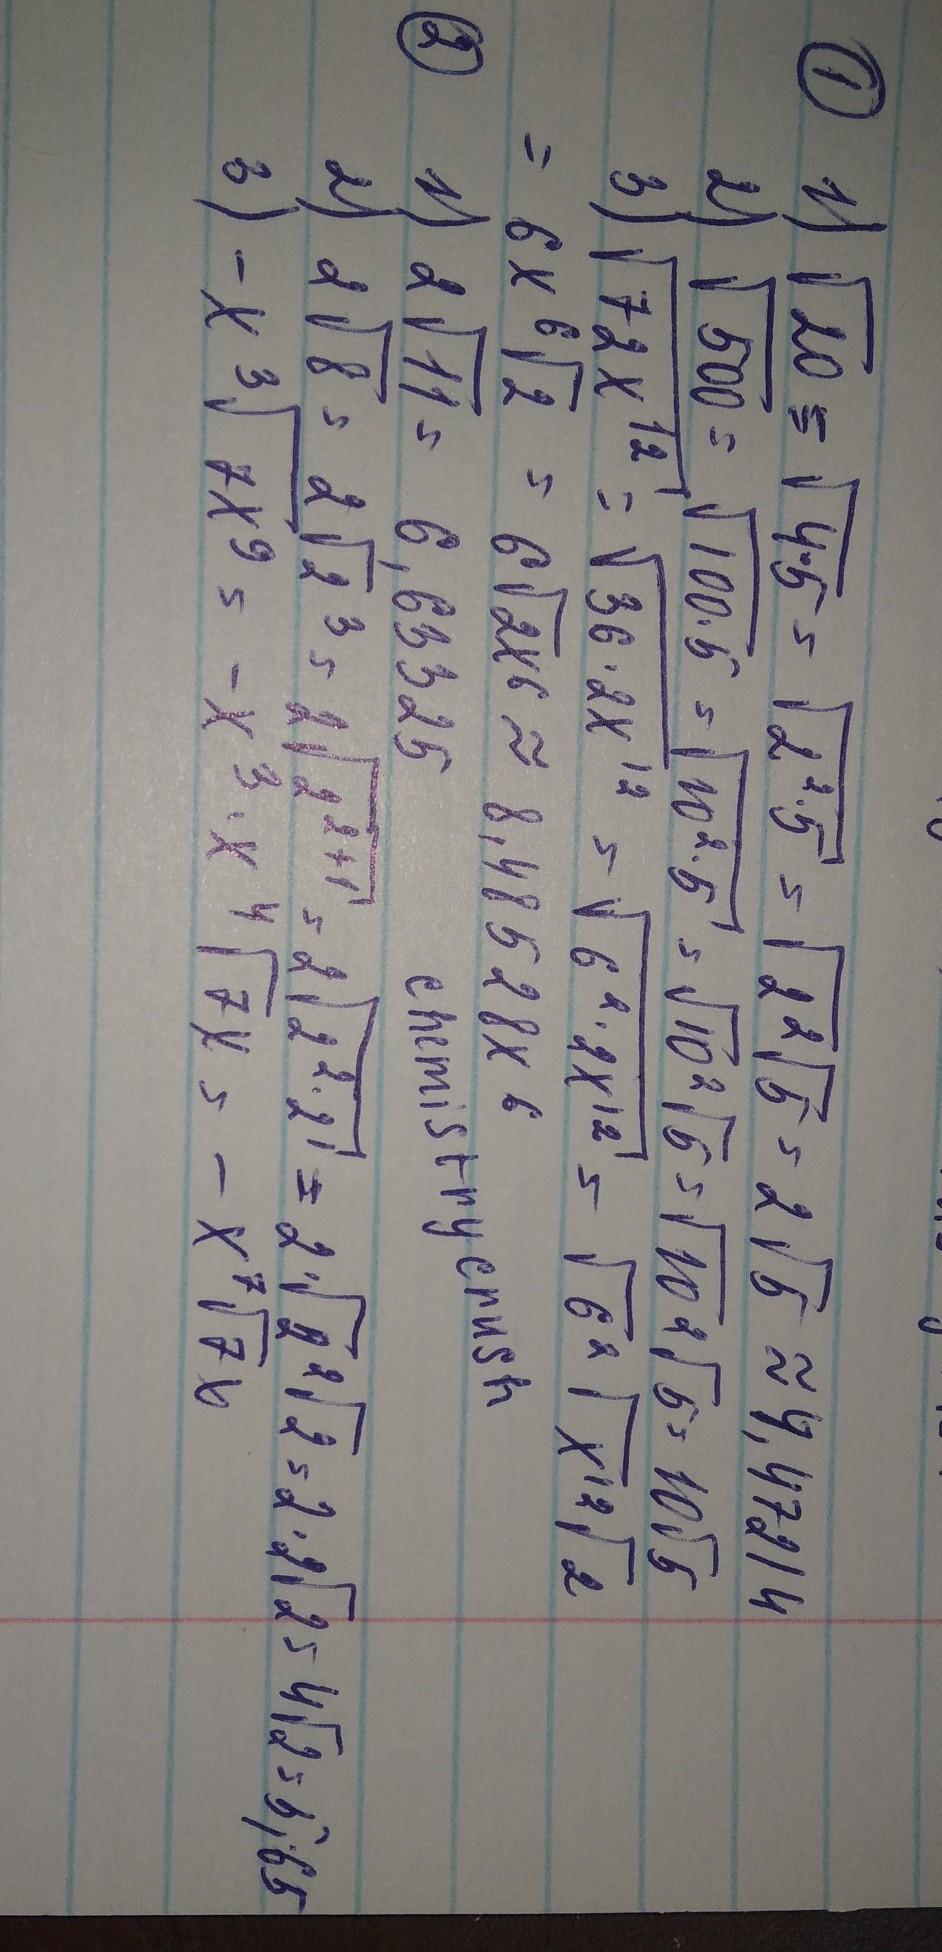 ① 1) √20 = √4·5 = √2²·5 = √2²√5 = 2√5 ≈ 4,47214
2) √500 = √100·5 = √10²·5 = √10²√5 = √10²√5 = 10√5
3) √72x¹² = √36·2x¹² = √6²·2x¹² = √6²√x¹²√2
= 6x⁶√2 = 6√2x⁶ ≈ 8,48528x⁶
② 1) 2√11 = 6,63325 chemistrycrush
2) 2√8 = 2√2³ = 2√2²⁺¹ = 2√2²·2¹ = 2·√2²√2 = 2·2√2 = 4√2 = 5,65
3) -x³√7x⁹ = -x³·x⁴√7x = -x⁷√7x